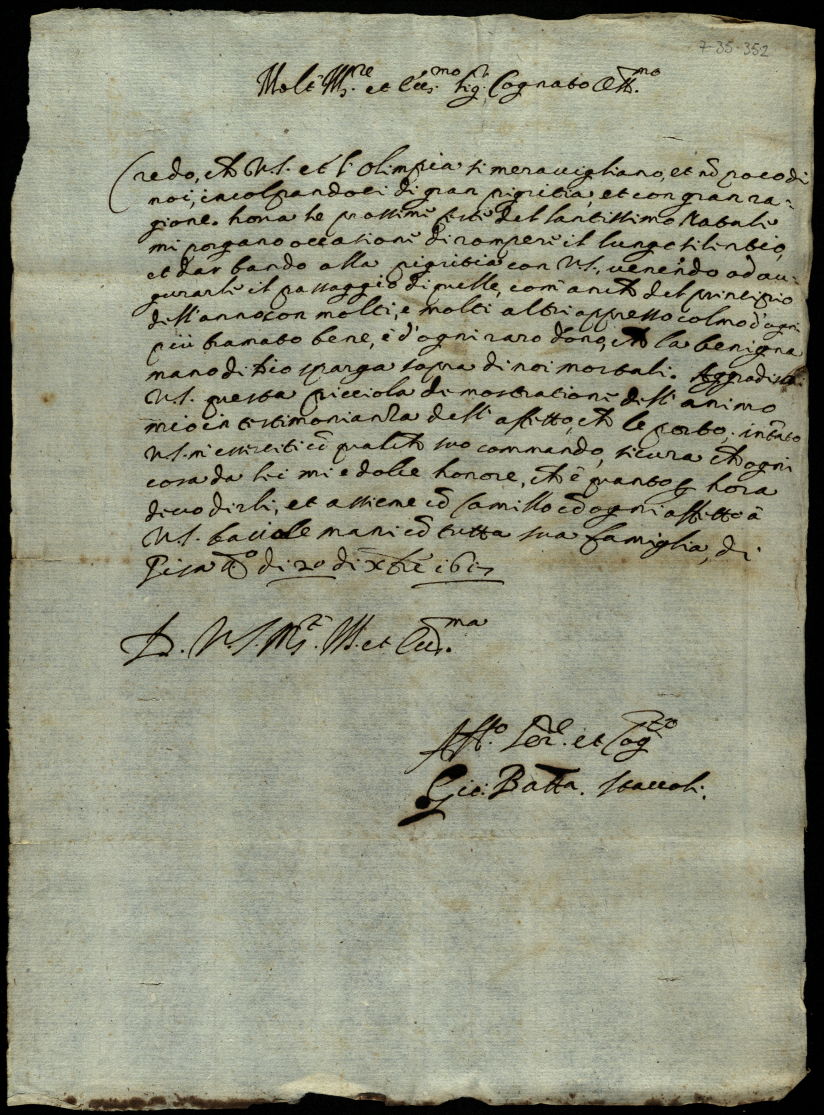 7-35-352
Molt' Mag.re et Ecc.mo Sig.r Cognato Oss.mo
Credo, ch V.S. et l'Olimpia si meravigliano, et nō poco di
noi, incolpandoci di gran pigritia, et con gran ra-
gione. hora le prossime feste del santissimo Natale
mi porgano occasione di rompere il lungo silentio,
et dar bando alla pigritia con V.S., venendo ad au-
gurarle il passaggio di quelle, com' anch del principio
dell'anno con molti, e molti altri appresso colmo d'ogni
più bramato bene, e d'ogni raro dono, ch la benigna
mano di Dio sparga sopra di noi mortali. Aggradisca
V.S. questa picciola demostratione dell'animo
mio in testimonianza dell'affetto, ch le porto, intāto
V.S. mi esserciti cō qualch suo commando, sicura ch ogni
cosa da lei mi è dolce honore, ch è quanto p hora
devo dirle, et assieme cō Camillo cō ogni affetto à
V.S. bacio le mani cō tutta sua famiglia, di
Pisa di 20 di Xbre 1617
D. V.S. M. et Ecc.ma
Aff.o Ser.re et Cog.to
Gio: Batta. Staccoli.